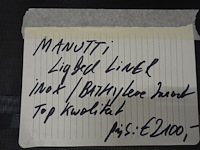 MANUTTi
Ligbed LINER
inox / BATHyline Zwart
Top Kwaliteit
prijs: €2100,-